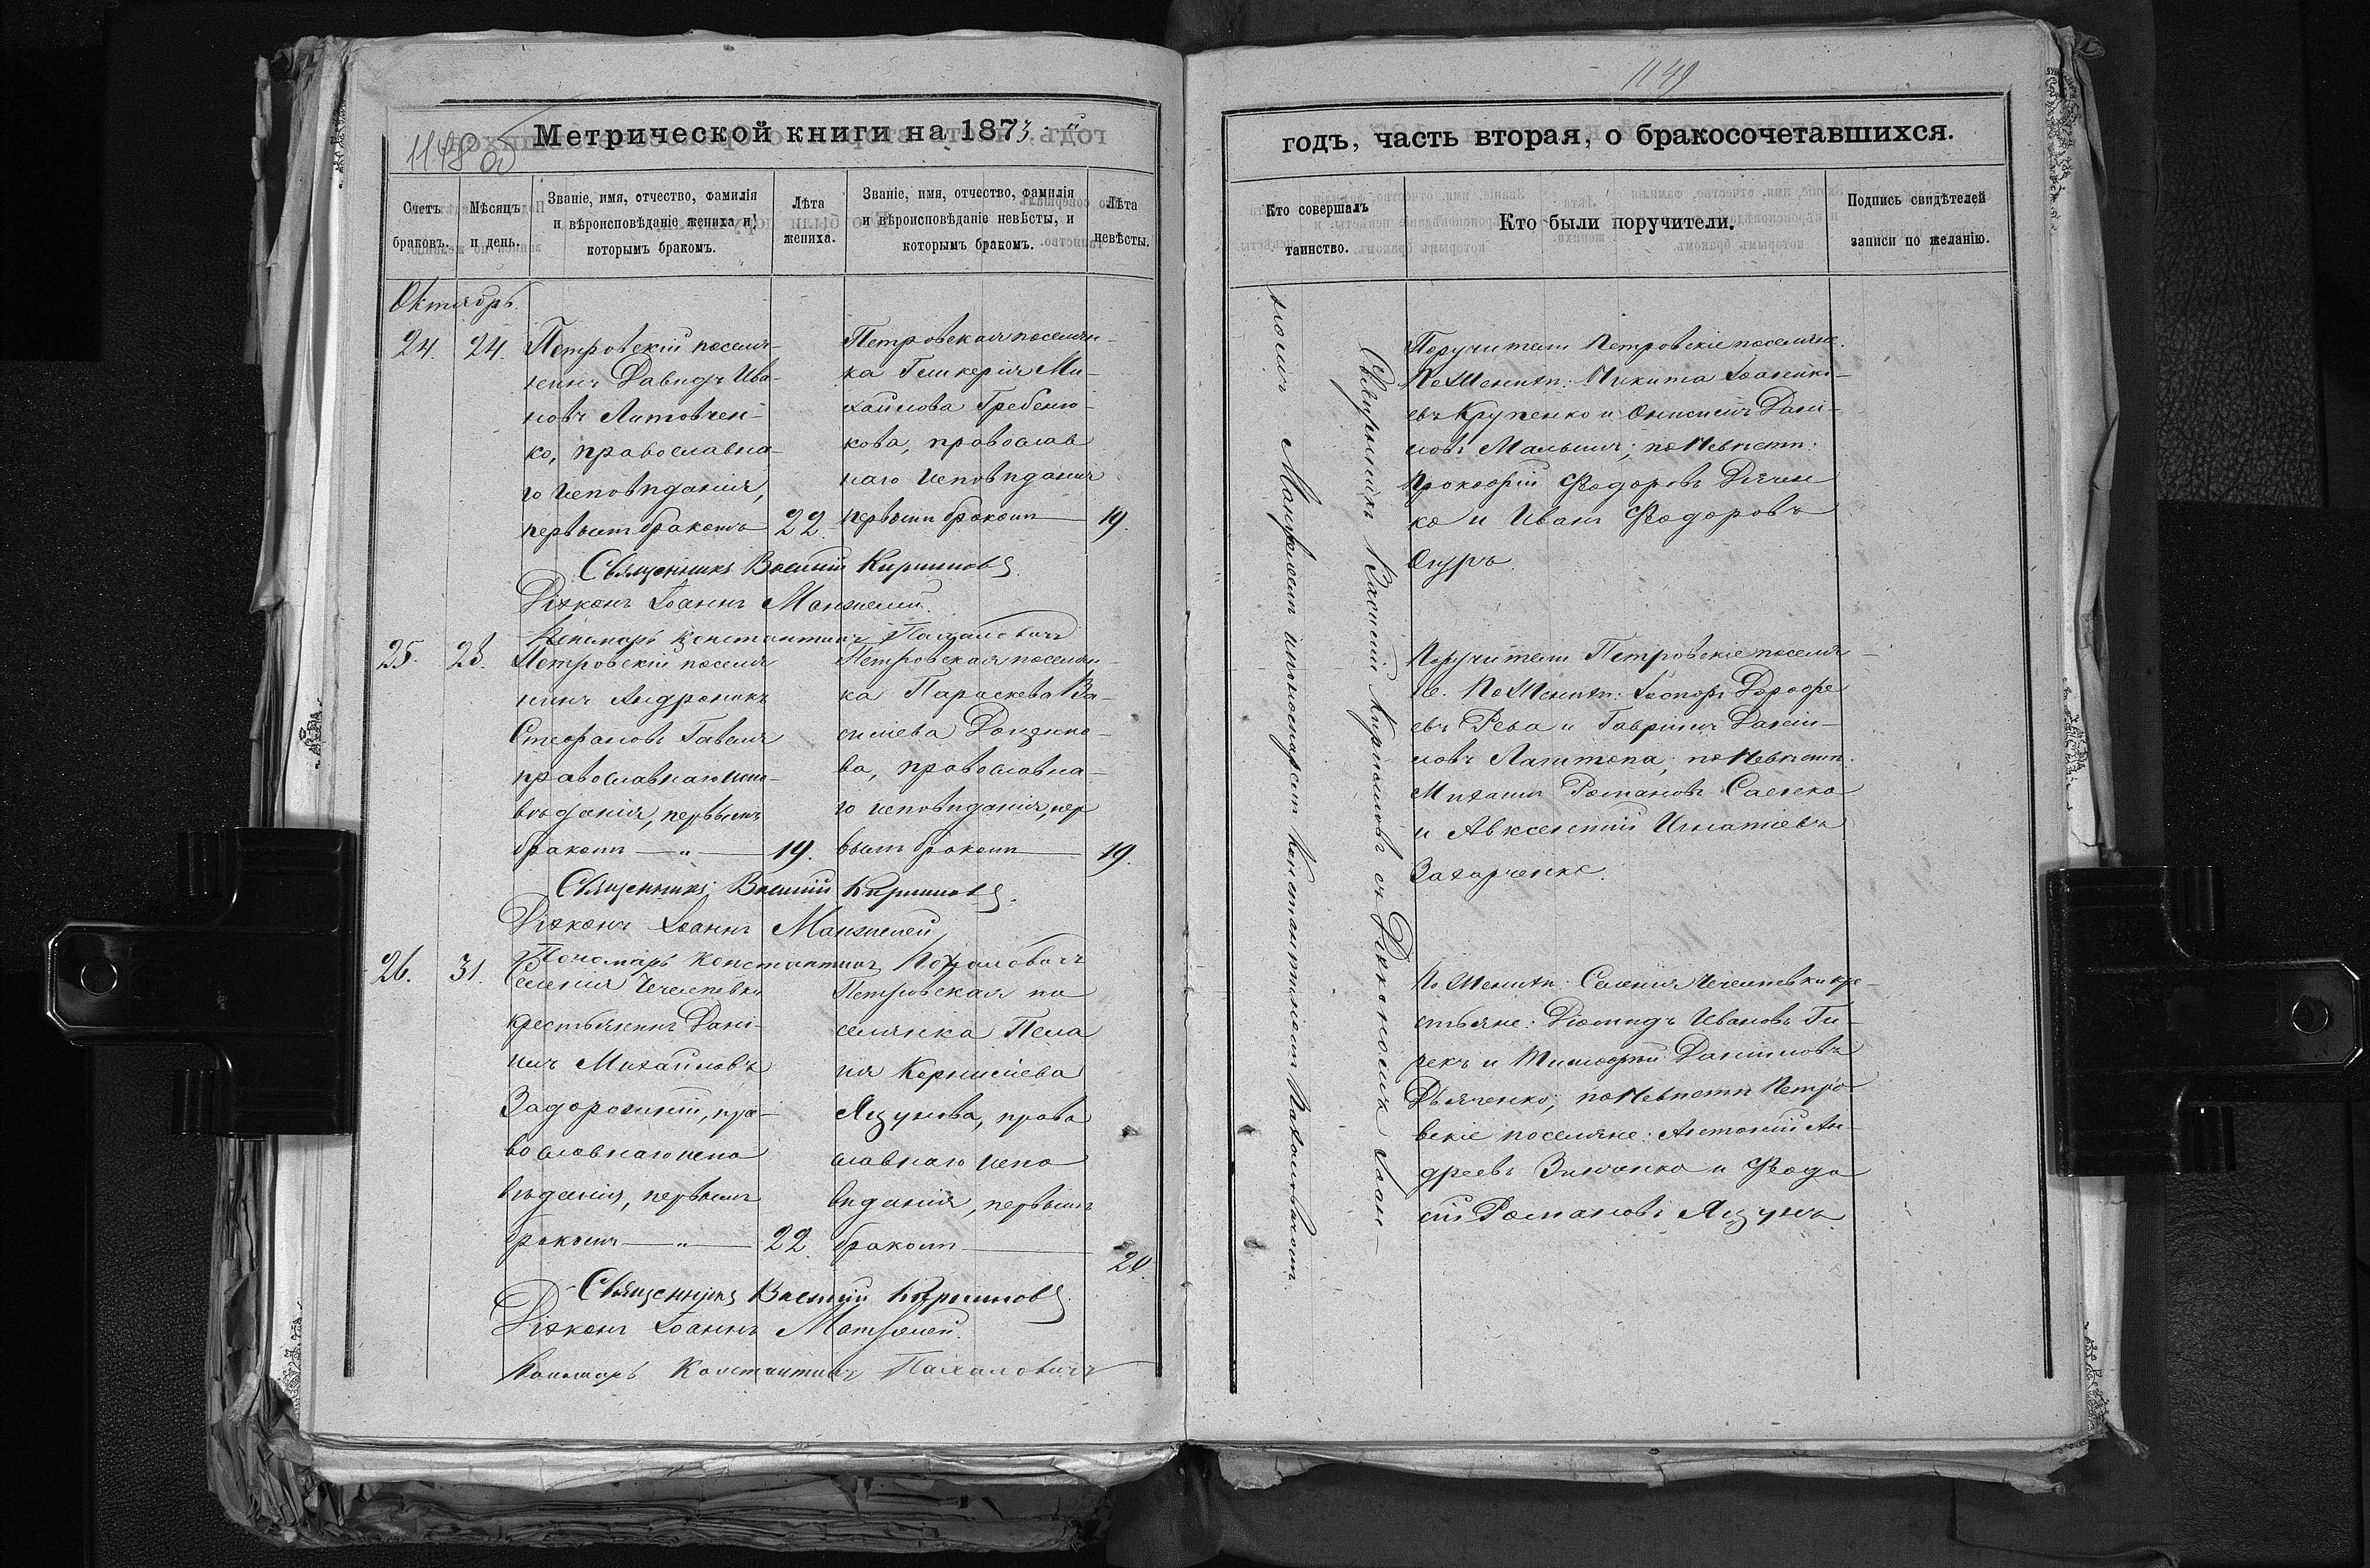 1148 об
Метрической книги на 1873 й
Счетъ браковъ.
Мѣсяцъ и день.
Званіе, имя, отчество, фамилія и вѣроисповѣданіе жениха и которымъ бракомъ.
Лѣта жениха.
Званіе, имя, отчество, фамилія и вѣроисповѣданіе невѣсты, и которымъ бракомъ.
Лѣта невѣсты.
Октябрь
24. 24.
Петровскій поселя-
нинъ Давидъ Ива-
новъ Литовчен-
ко, православна-
го исповѣданія,
первымъ бракомъ 22
Петровская поселян-
ка Гликерія Ми-
хайлова Гребеню-
кова, православ
наго исповѣданія
первымъ бракомъ 19.
Священникъ Василій Кирилловъ
Діаконъ Іоаннъ Манжелей.
Пономарь Константинъ Пахаловичъ
25. 28.
Петровскій поселя
нинъ Андроникъ
Стефановъ Гавеля
православнаго испо-
вѣданія, первымъ
бракомъ 19.
Петровская поселян-
ка Параскева Ва-
силіева Доценко-
ва, православна-
го исповѣданія, пер
вымъ бракомъ 19.
Священникъ Василій Кирилловъ.
Діаконъ Іоаннъ Манжелей
Пономарь Константинъ Пахаловичъ
26. 31.
Селенія Чечелевки
крестьянинъ Дані-
илъ Михайловъ
Задорожній, пра-
вославнаго испо
вѣданія, первымъ
бракомъ 22.
Петровская по
селянка Пела
гія Корниліева
Яцунова, право
славнаго испо
вѣданія, первымъ
бракомъ 20.
Священникъ Василій Кирилловъ
Діаконъ Іоаннъ Манжелей.
Пономарь Константинъ Пахаловичъ
1149
годъ, часть вторая, о бракосочетавшихся.
Кто совершалъ таинство.
Кто были поручители.
Подпись свидѣтелей записи по желанію.
Священникъ Василій Кирилловъ съ Діакономъ Іоан-
номъ Манжелеемъ и пономаремъ Константиномъ Пахаловичемъ.
Поручители Петровскіе поселяне.
По Женихѣ: Никита
евъ Крупенко и Онисимъ Дані-
ловъ Малышъ; по Невѣстѣ:
Прокофій Ѳеодоровъ Дячен
ко и Иванъ Ѳеодоровъ
Поручители Петровскіе поселя-
не. По Женихѣ: Дорофе
евъ Рева и Гавріилъ Даніи-
ловъ Лахтюпа; по Невѣстѣ:
Михаилъ Романовъ Саенко
и Авксентій Игнатіевъ
Захарченко.
По Женихѣ: Селенія Чечелевки кре-
стьяне: Діомидъ Ивановъ Ги-
рекъ и Тимофей Данииловъ
Дьяченко; по Невѣстѣ Петро-
вскіе поселяне: Антоній Ан-
дреевъ Зинченко и Ѳеодо
сій Романовъ Яцунъ